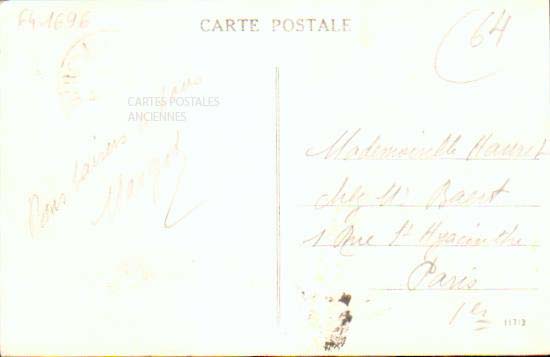 641696
CARTE POSTALE
64
CARTES POSTALES
ANCIENNES
Bons baisers
Margot
Mademoiselle
Chez Mr
1 Rue St Hyacinthe
Paris
1er